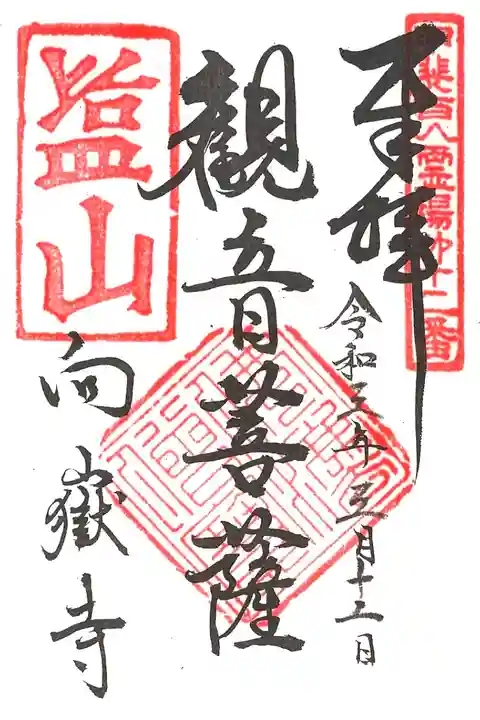 甲斐百八霊場㐧十二番
奉拝
令和三年三月十二日
觀音菩薩
塩山
向嶽寺